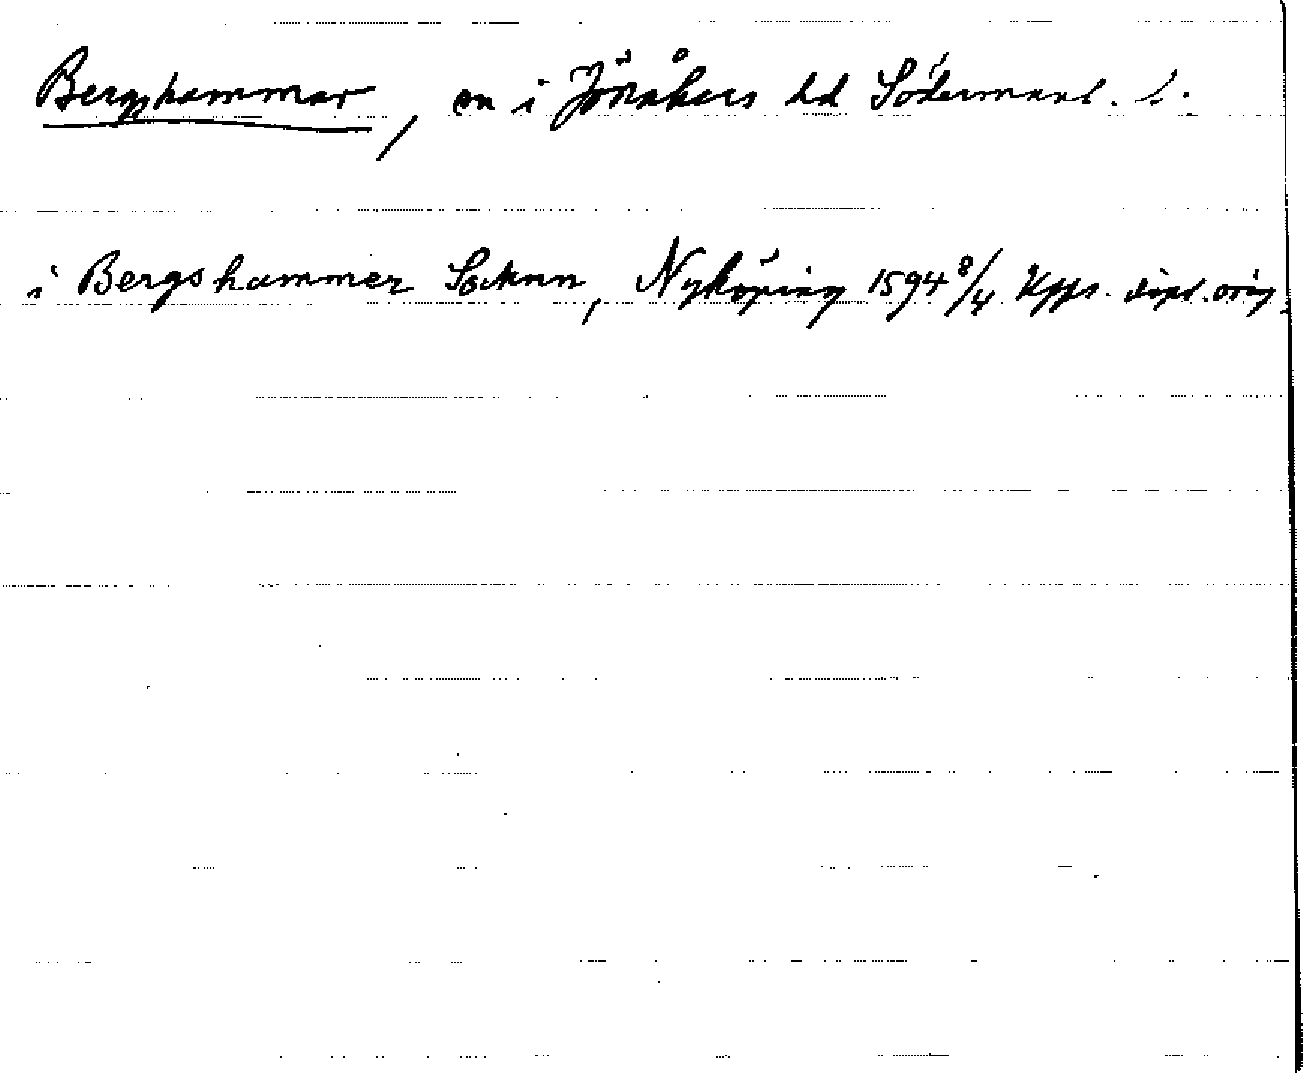 Bergshammar, sn i Jönåkers hd Södermanl. l.
i Bergshammer Socknn, Nyköping 1594 8/4 Kpps. dipl. orig.